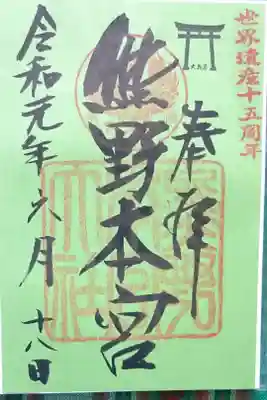 世界遺産十五周年
奉拝
熊野本宮
令和元年六月十八日